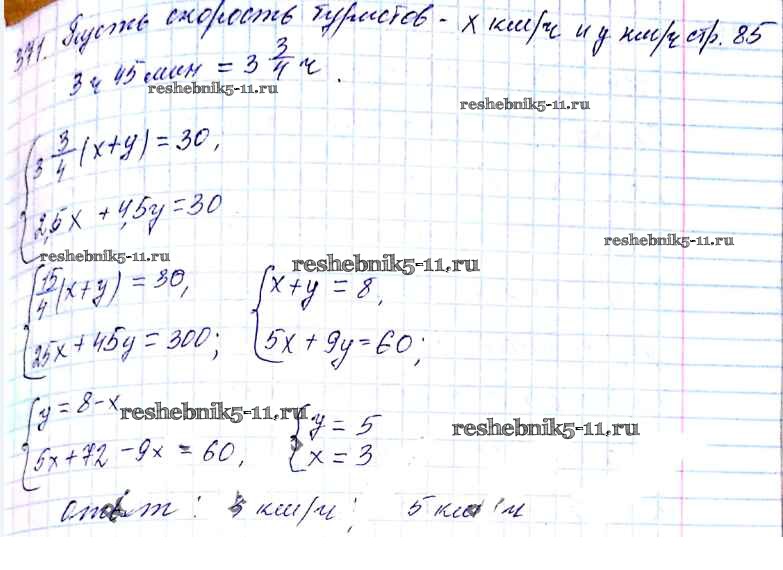 371. Пусть скорость туристов - x км/ч и y км/ч стр. 85
3 ч 45 мин = 3 3/4 ч.
reshebnik5-11.ru
reshebnik5-11.ru
{ 3 3/4 (x+y) = 30,
2,5x + 4,5y = 30
reshebnik5-11.ru
reshebnik5-11.ru
reshebnik5-11.ru
{ 15/4 (x+y) = 30, { x + y = 8,
25x + 45y = 300; 5x + 9y = 60;
{ y = 8 - x { y = 5
reshebnik5-11.ru
reshebnik5-11.ru
5x + 72 - 9x = 60, x = 3
ответ: 3 км/ч; 5 км/ч